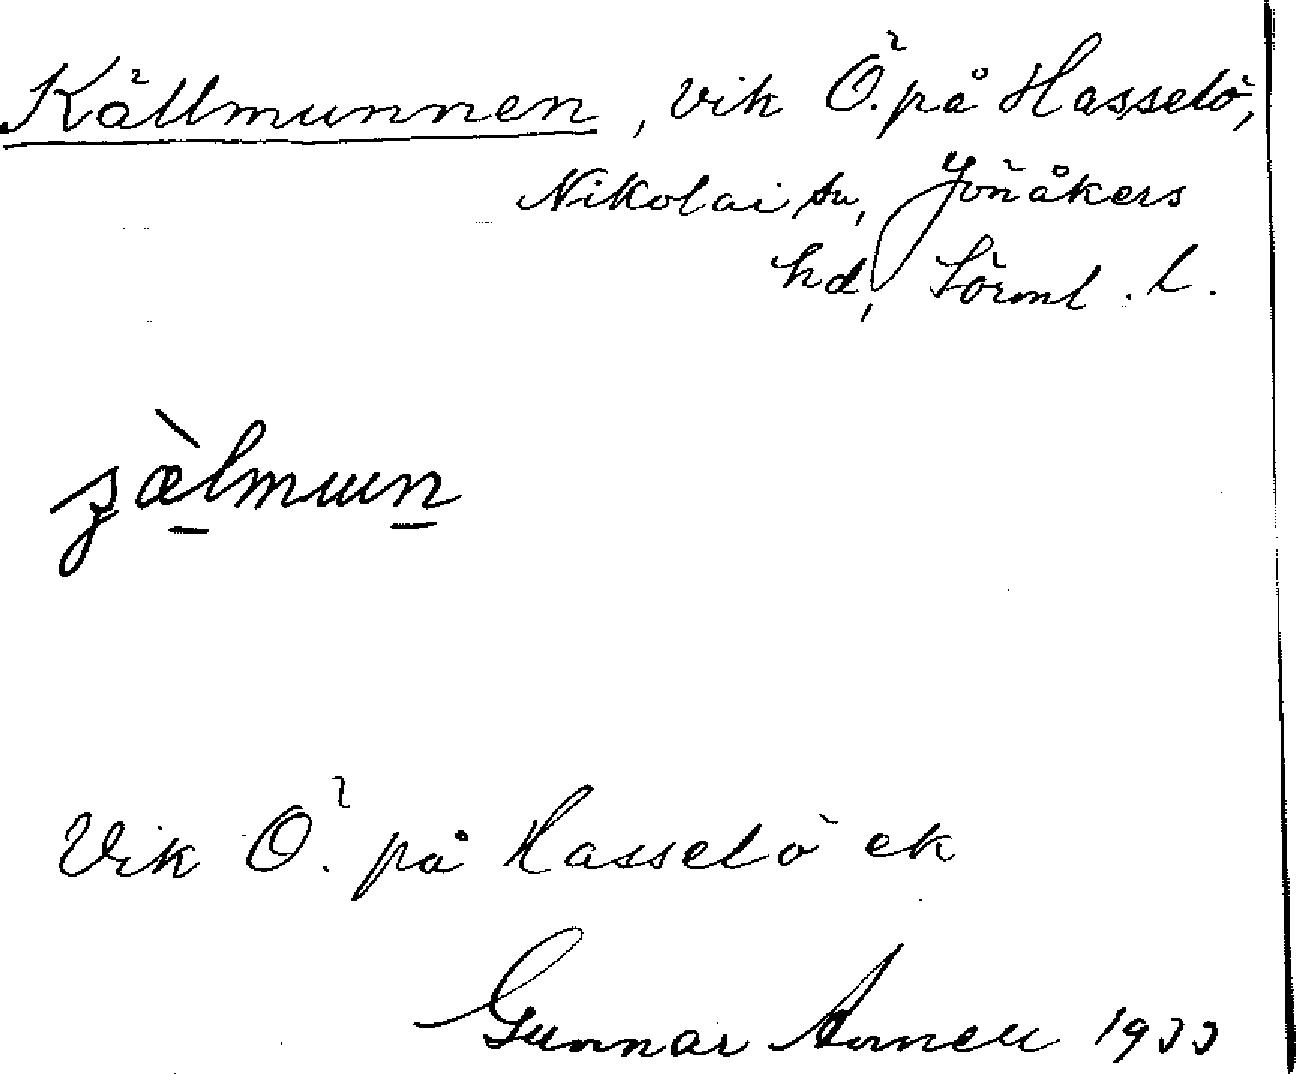 Källmunnen, vik Ö. på Hasselö,
Nikolai sn, Jönåkers
hd, Sörml. l.
Vik Ö. på Hasselö ek
Gunnar 1933